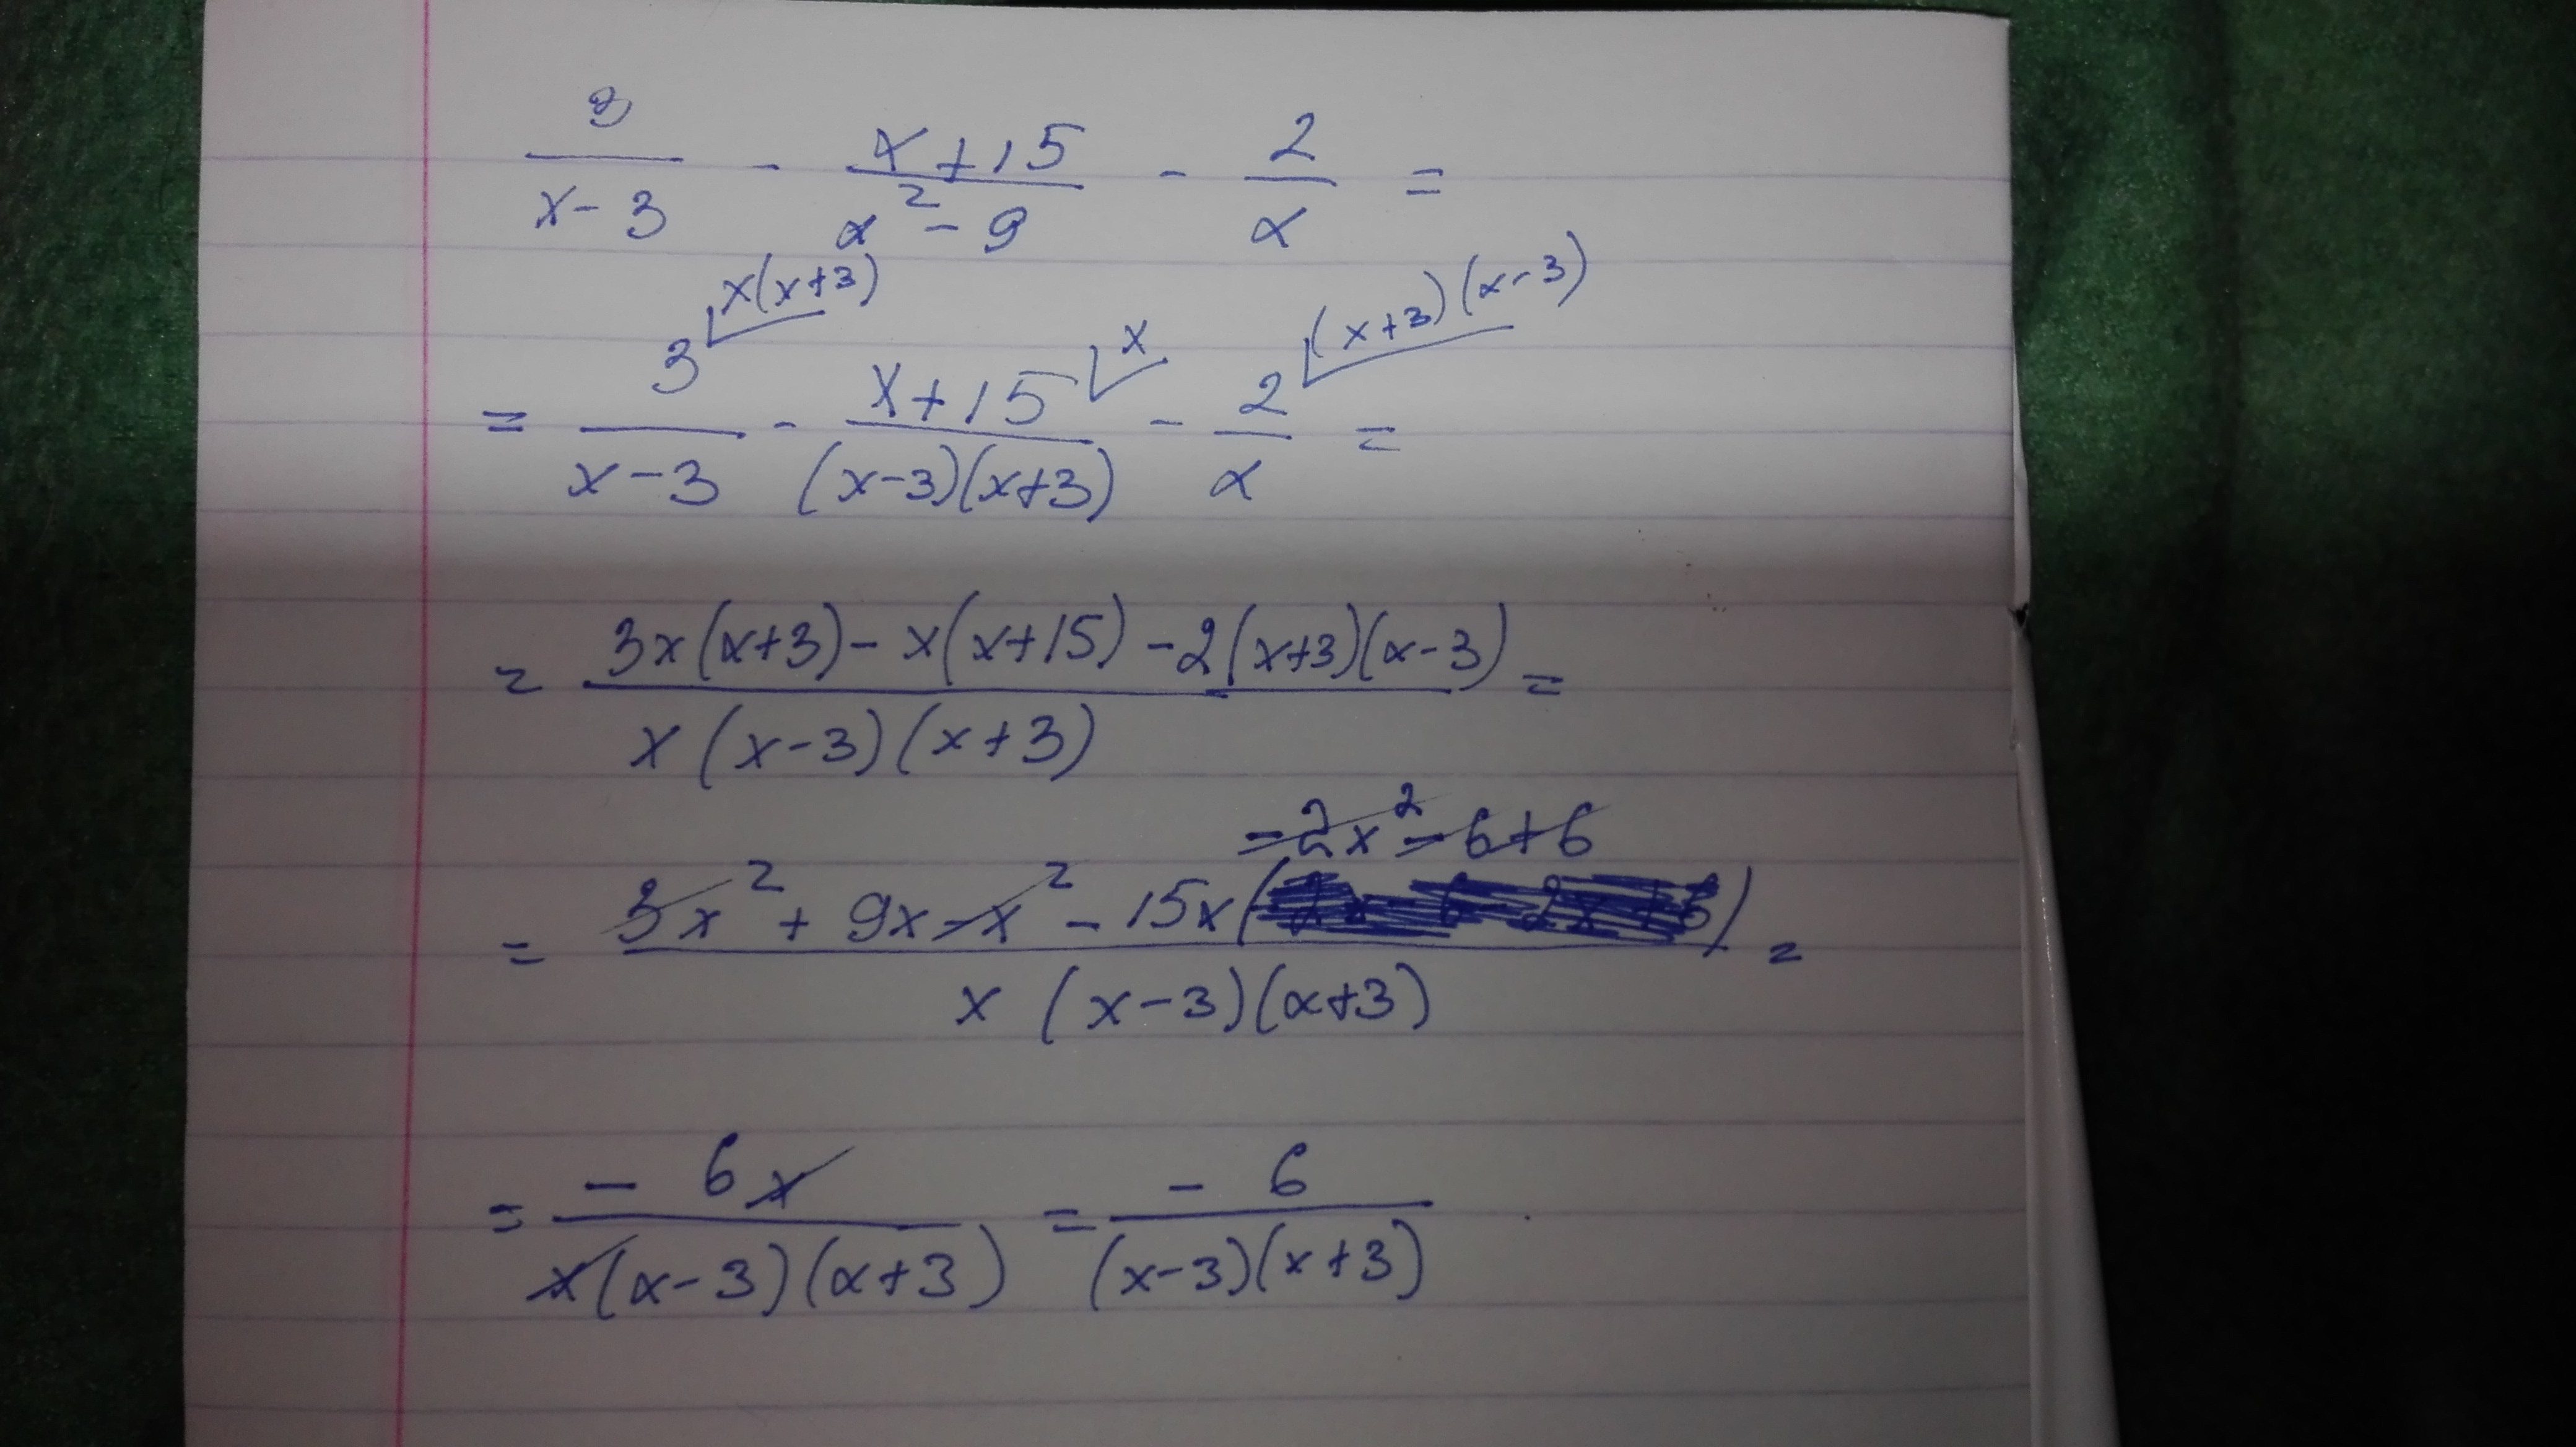 3/(x-3) - (x+15)/(x²-9) - 2/x =
x(x+3) x (x+3)(x-3)
= 3/(x-3) - (x+15)/((x-3)(x+3)) - 2/x =
= (3x(x+3) - x(x+15) - 2(x+3)(x-3))/(x(x-3)(x+3)) =
-2x²-6+6
= (3x² + 9x - x² - 15x( ))/(x(x-3)(x+3)) =
= -6x/(x(x-3)(x+3)) = -6/((x-3)(x+3))